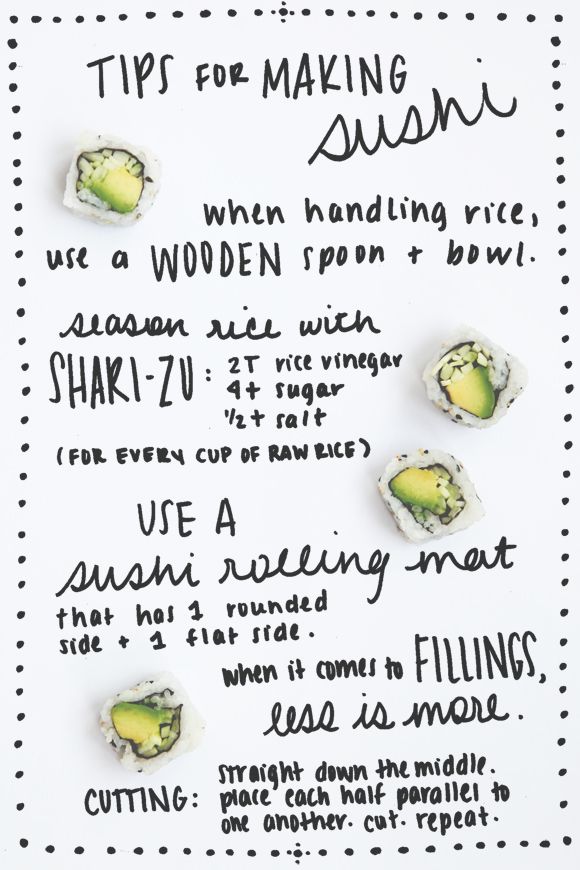 TIPS FOR MAKING
sushi
when handling rice,
use a WOODEN spoon + bowl.
season rice with
SHARI-ZU: 2T rice vinegar
4t sugar
1/2t salt
(FOR EVERY CUP OF RAW RICE)
USE A
sushi rolling mat
that has 1 rounded
side + 1 flat side.
when it comes to FILLINGS,
less is more.
CUTTING: straight down the middle.
place each half parallel to
one another. cut. repeat.